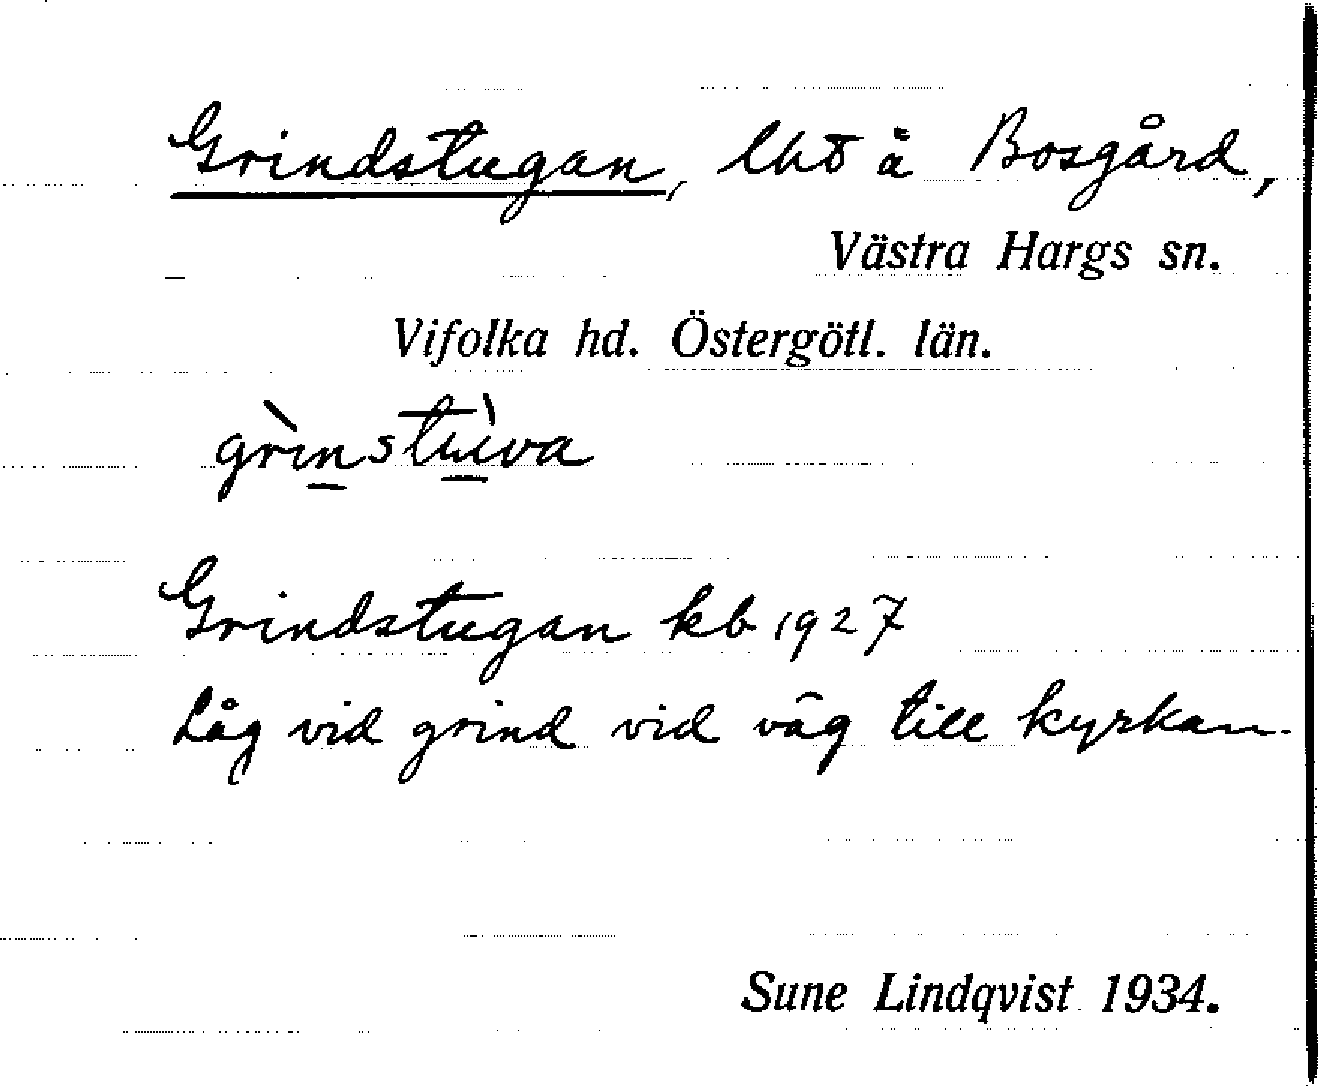 Grindstugan, lht å Bosgård,
Västra Hargs sn.
Vifolka hd. Östergötl. län.
grìnstùva
Grindstugan kb 1927
Låg vid grind vid väg till kyrkan.
Sune Lindqvist 1934.